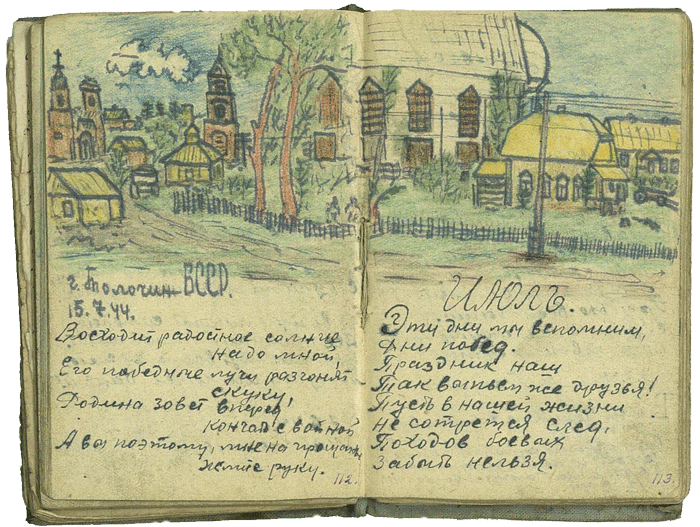 г. Толочин БССР.
15.7.44.
Восходит радостное солнце
надо мной,
Его победные лучи разгонят
скуку!
Родина зовет вперед
кончать с войной
А вы поэтому, мне на прощанье,
жмите руку.
112.
ИЮЛЬ.
Эти дни мы вспомним,
Дни побед.
Праздник наш
Так выпьем же друзья!
Пусть в нашей жизни
не сотрется след,
Походов боевых
Забыть нельзя.
113.